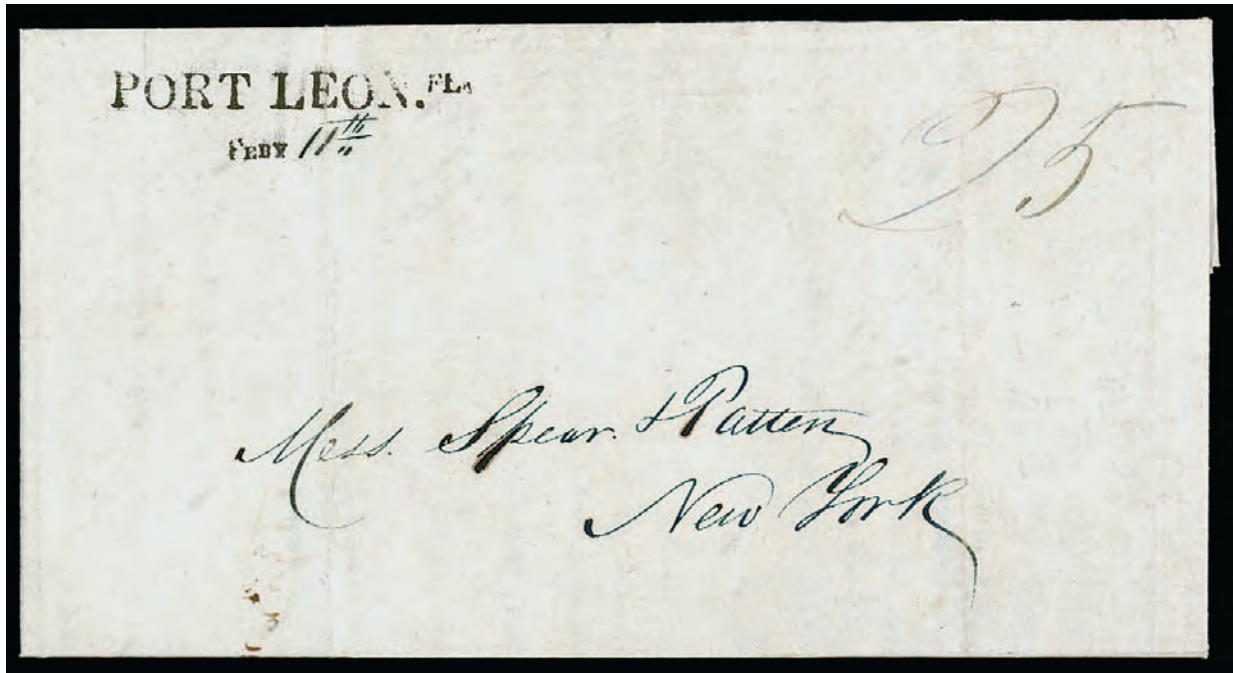 PORT LEON. FLA
FEBY 11th
25
Mess. Spear. & Patten
New York